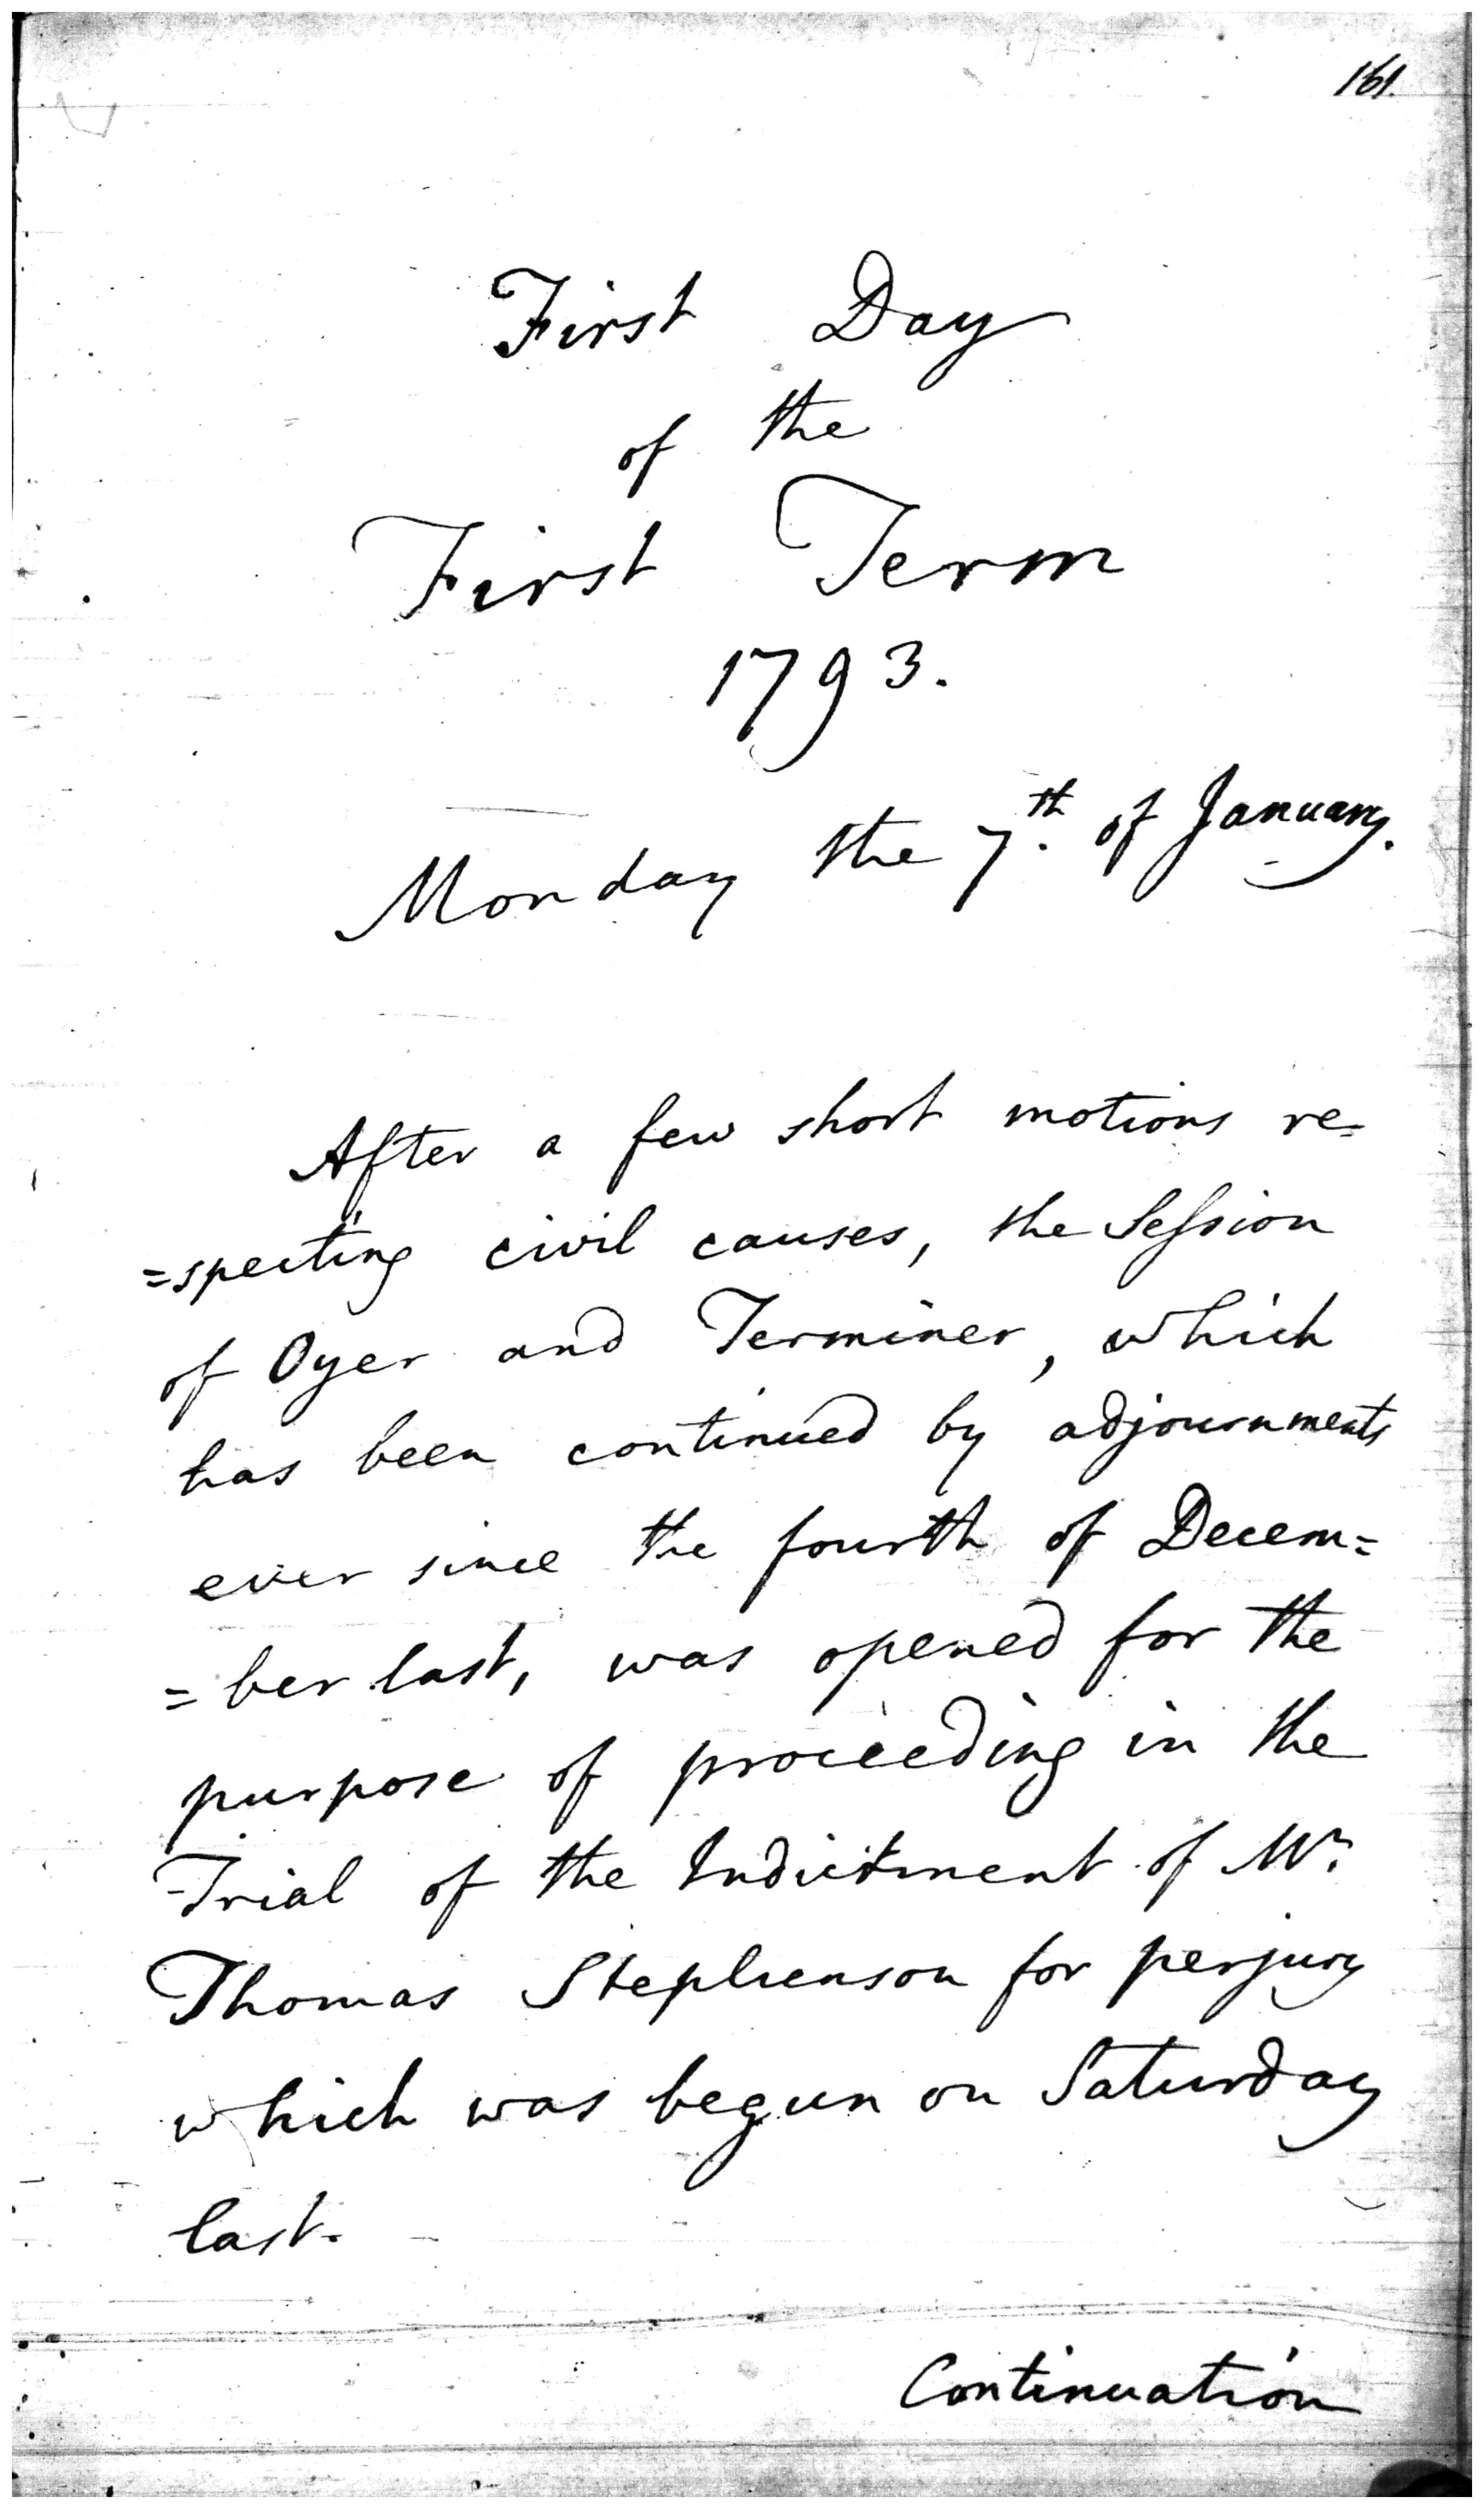 161.
First Day
of the
First Term
1793.
Monday the 7th. of January.
After a few short motions re-
=specting civil causes, the Session
of Oyer and Terminer, which
has been continued by adjournments
ever since the fourth of Decem=
=ber last, was opened for the
purpose of proceeding in the
Trial of the Indictment of Mr.
Thomas Stephenson for perjury
which was begun on Saturday
last.
Continuation